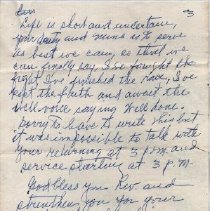 3
Dear
Life is short and uncertain,
your duty and mine is to serve
as best we can, so that we
can finally say, I've fought the
fight, I've finished the race, I've
kept the faith and await the
Welcome saying Well done.
Sorry to have to write this but
it was impossible to talk with
your returning at 3 p.m and
service starting at 3 p.m.
God bless you Rev and
strengthen you for your